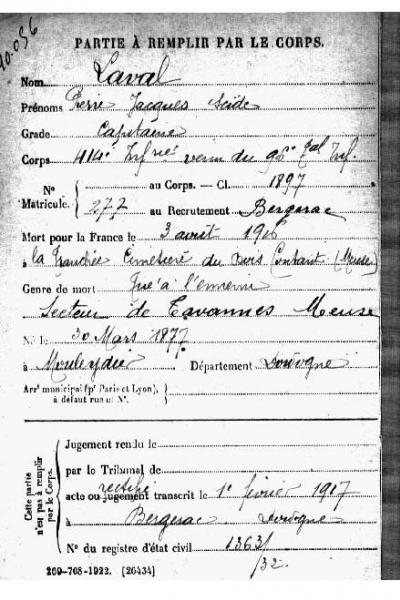 90.056
PARTIE À REMPLIR PAR LE CORPS.
Nom Laval
Prénoms Pierre Jacques
Grade Capitaine
Corps 414e Infie venu du 96e Inf.
No Matricule. au Corps. — Cl. 1897
277 au Recrutement Bergerac
Mort pour la France le 3 avril 1916
à la Tranchée Cimetière du Bois (Meuse)
Genre de mort Tué à l'ennemi
Secteur de Tavannes Meuse
Né le 30 Mars 1877
à Mouleydier Département Dordogne
Arrt municipal (pr Paris et Lyon), à défaut rue et No.
Cette partie n'est pas à remplir par le Corps.
Jugement rendu le
par le Tribunal de
rectifié
acte ou jugement transcrit le 1e février 1917
à Bergerac Dordogne
No du registre d'état civil 1363/
32.
269-768-1922. (26434)